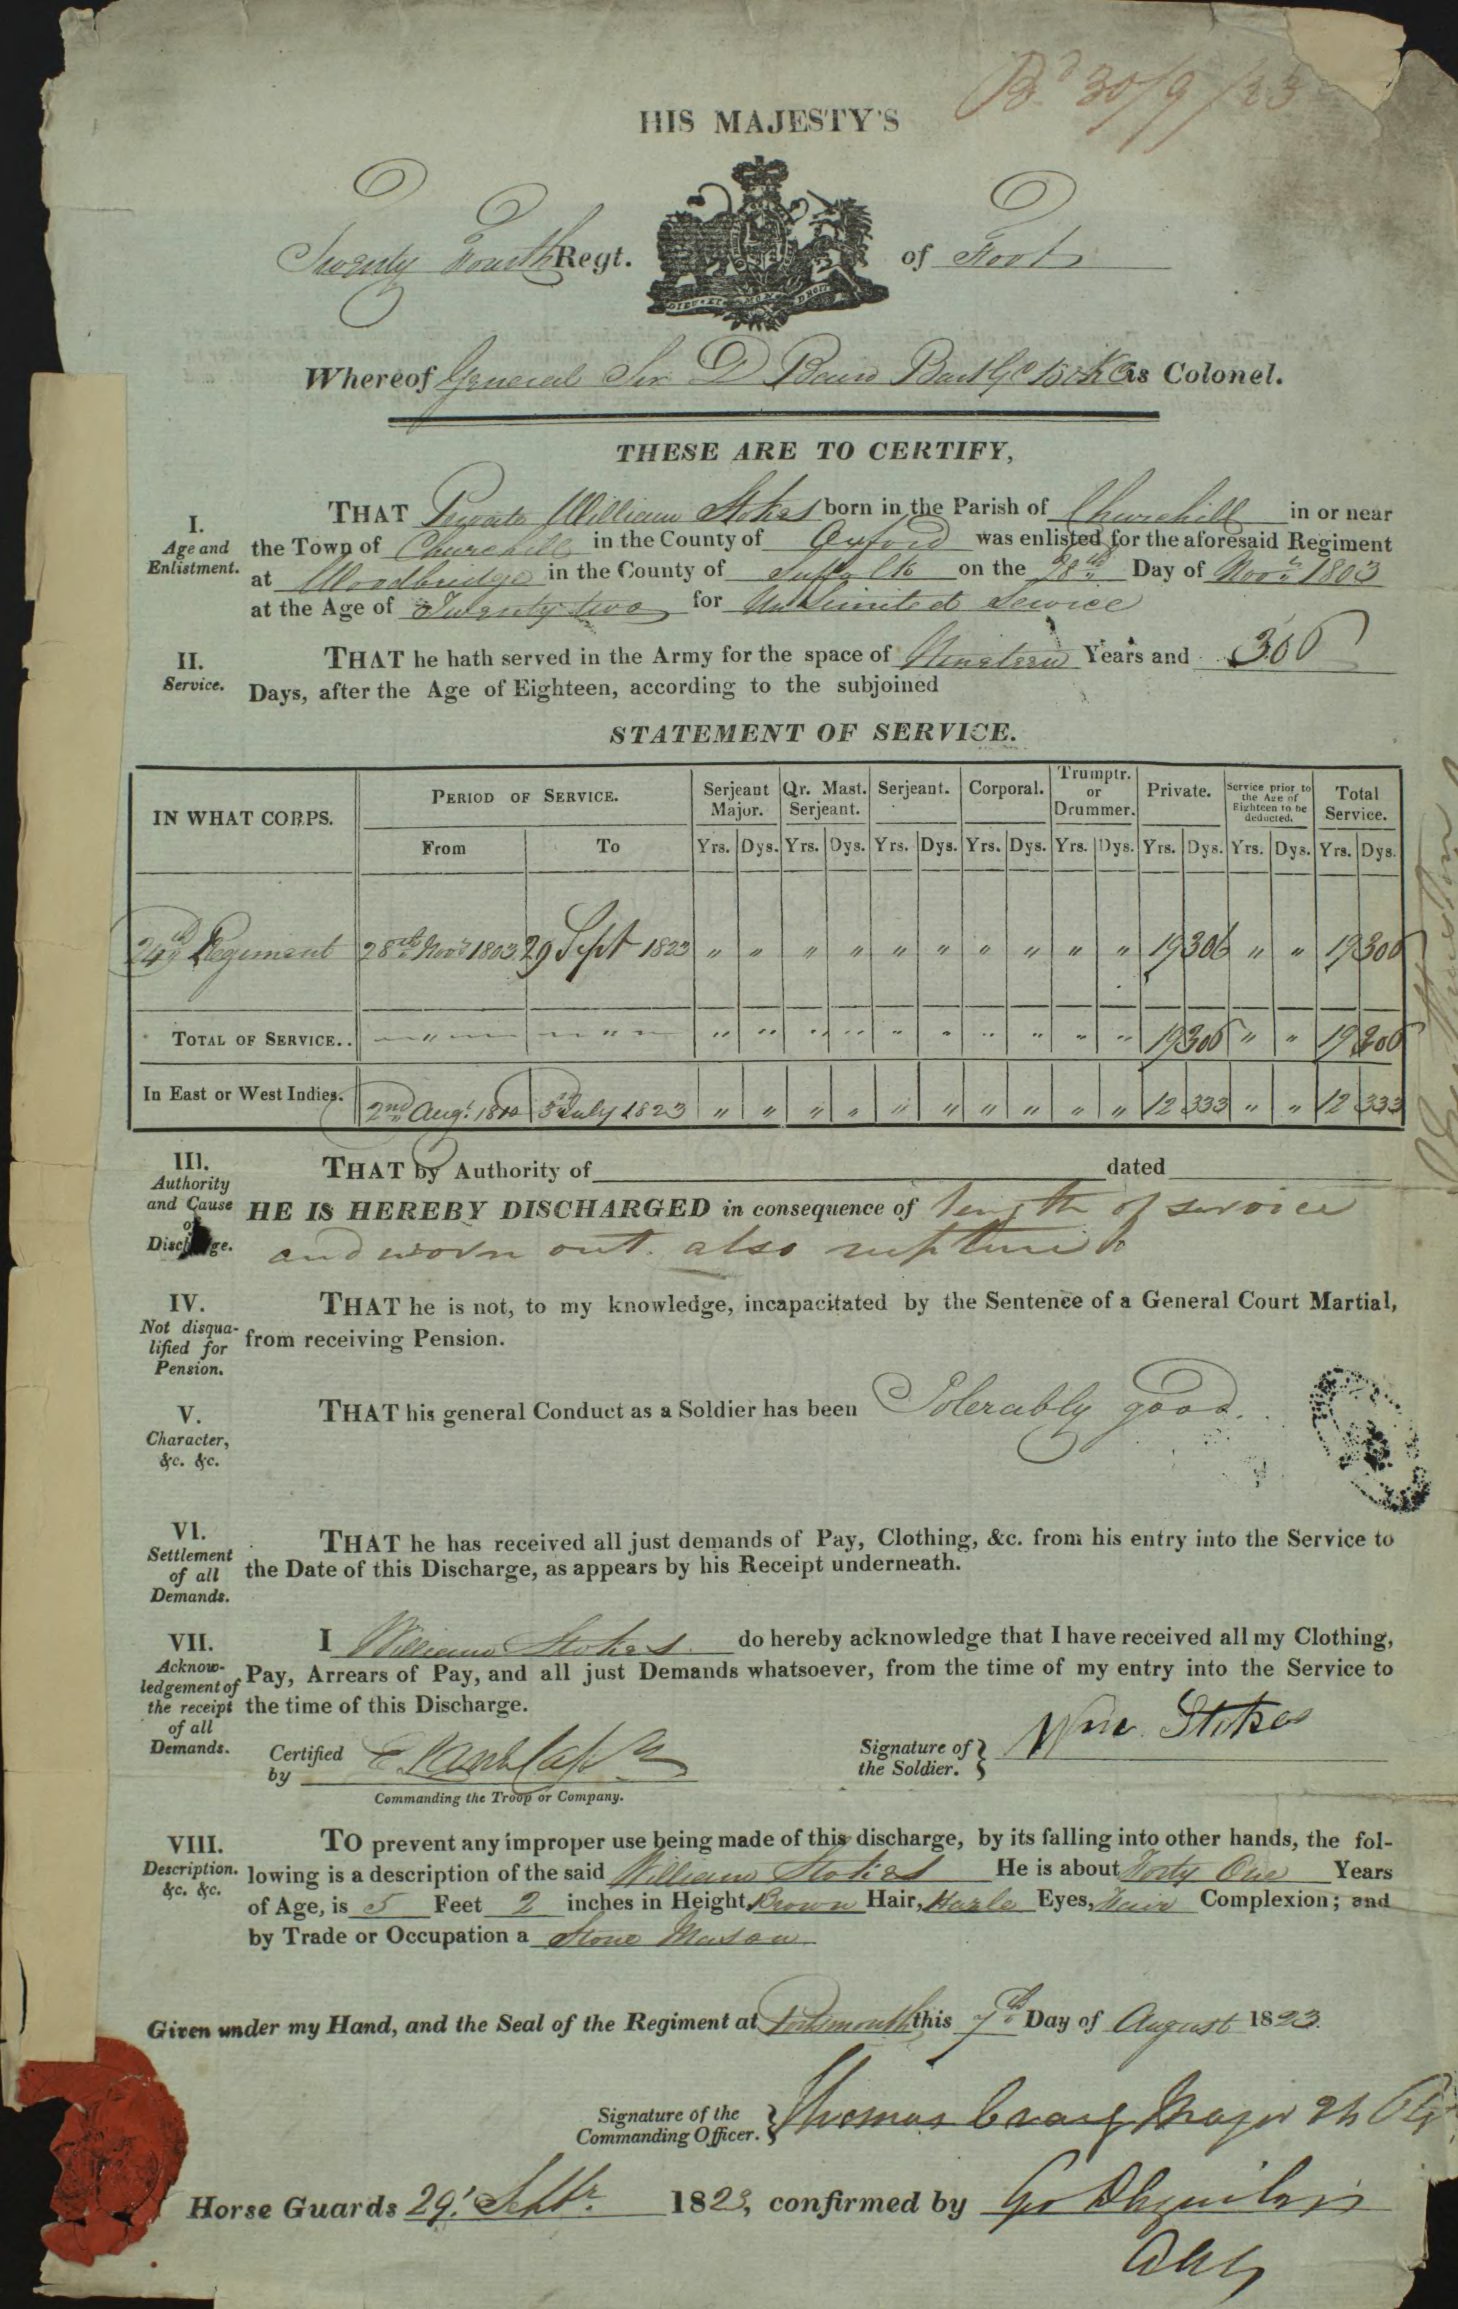 Bd 30/9/23
HIS MAJESTY'S
Twenty Fourth Regt. of Foot
DIEU ET MON DROIT
Whereof General Sir D Baird Bart G C B & K C as Colonel.
THESE ARE TO CERTIFY,
I. Age and Enlistment.
THAT Private William Stokes born in the Parish of Churchill in or near
the Town of Churchill in the County of Oxford was enlisted for the aforesaid Regiment
at Woodbridge in the County of Suffolk on the 28th Day of Novr. 1803
at the Age of Twenty two for Unlimited Service
II. Service.
THAT he hath served in the Army for the space of Nineteen Years and 306
Days, after the Age of Eighteen, according to the subjoined
STATEMENT OF SERVICE.
IN WHAT CORPS. PERIOD OF SERVICE. Serjeant Major. Qr. Mast. Serjeant. Serjeant. Corporal. Trumptr. or Drummer. Private. Service prior to the Age of Eighteen to be deducted. Total Service.
From To Yrs. Dys. Yrs. Dys. Yrs. Dys. Yrs. Dys. Yrs. Dys. Yrs. Dys. Yrs. Dys. Yrs. Dys.
24th Regiment 28th Novr 1803 29 Sept 1823 " " " " " " " " " " 19 306 " " 19 306
TOTAL OF SERVICE.. " " " " " " " " " " " " 19 306 " " 19 306
In East or West Indies. 2nd Augt. 1810 5th July 1823 " " " " " " " " " " 12 333 " " 12 333
III. Authority and Cause of Discharge.
THAT by Authority of dated
HE IS HEREBY DISCHARGED in consequence of length of service
and worn out. also ruptured
IV. Not disqualified for Pension.
THAT he is not, to my knowledge, incapacitated by the Sentence of a General Court Martial,
from receiving Pension.
V. Character, &c. &c.
THAT his general Conduct as a Soldier has been Tolerably good.
VI. Settlement of all Demands.
THAT he has received all just demands of Pay, Clothing, &c. from his entry into the Service to
the Date of this Discharge, as appears by his Receipt underneath.
VII. Acknowledgement of the receipt of all Demands.
I William Stokes do hereby acknowledge that I have received all my Clothing,
Pay, Arrears of Pay, and all just Demands whatsoever, from the time of my entry into the Service to
the time of this Discharge.
Certified by Capt
Commanding the Troop or Company.
Signature of the Soldier. Wm. Stokes
VIII. Description. &c. &c.
TO prevent any improper use being made of this discharge, by its falling into other hands, the fol-
lowing is a description of the said William Stokes He is about Forty One Years
of Age, is 5 Feet 2 inches in Height, Brown Hair, Hazle Eyes, Fair Complexion; and
by Trade or Occupation a Stone Mason
Given under my Hand, and the Seal of the Regiment at Portsmouth this 7th Day of August 1823.
Signature of the Commanding Officer. Thomas Craig Major 24
Horse Guards 29. Septr. 1823, confirmed by